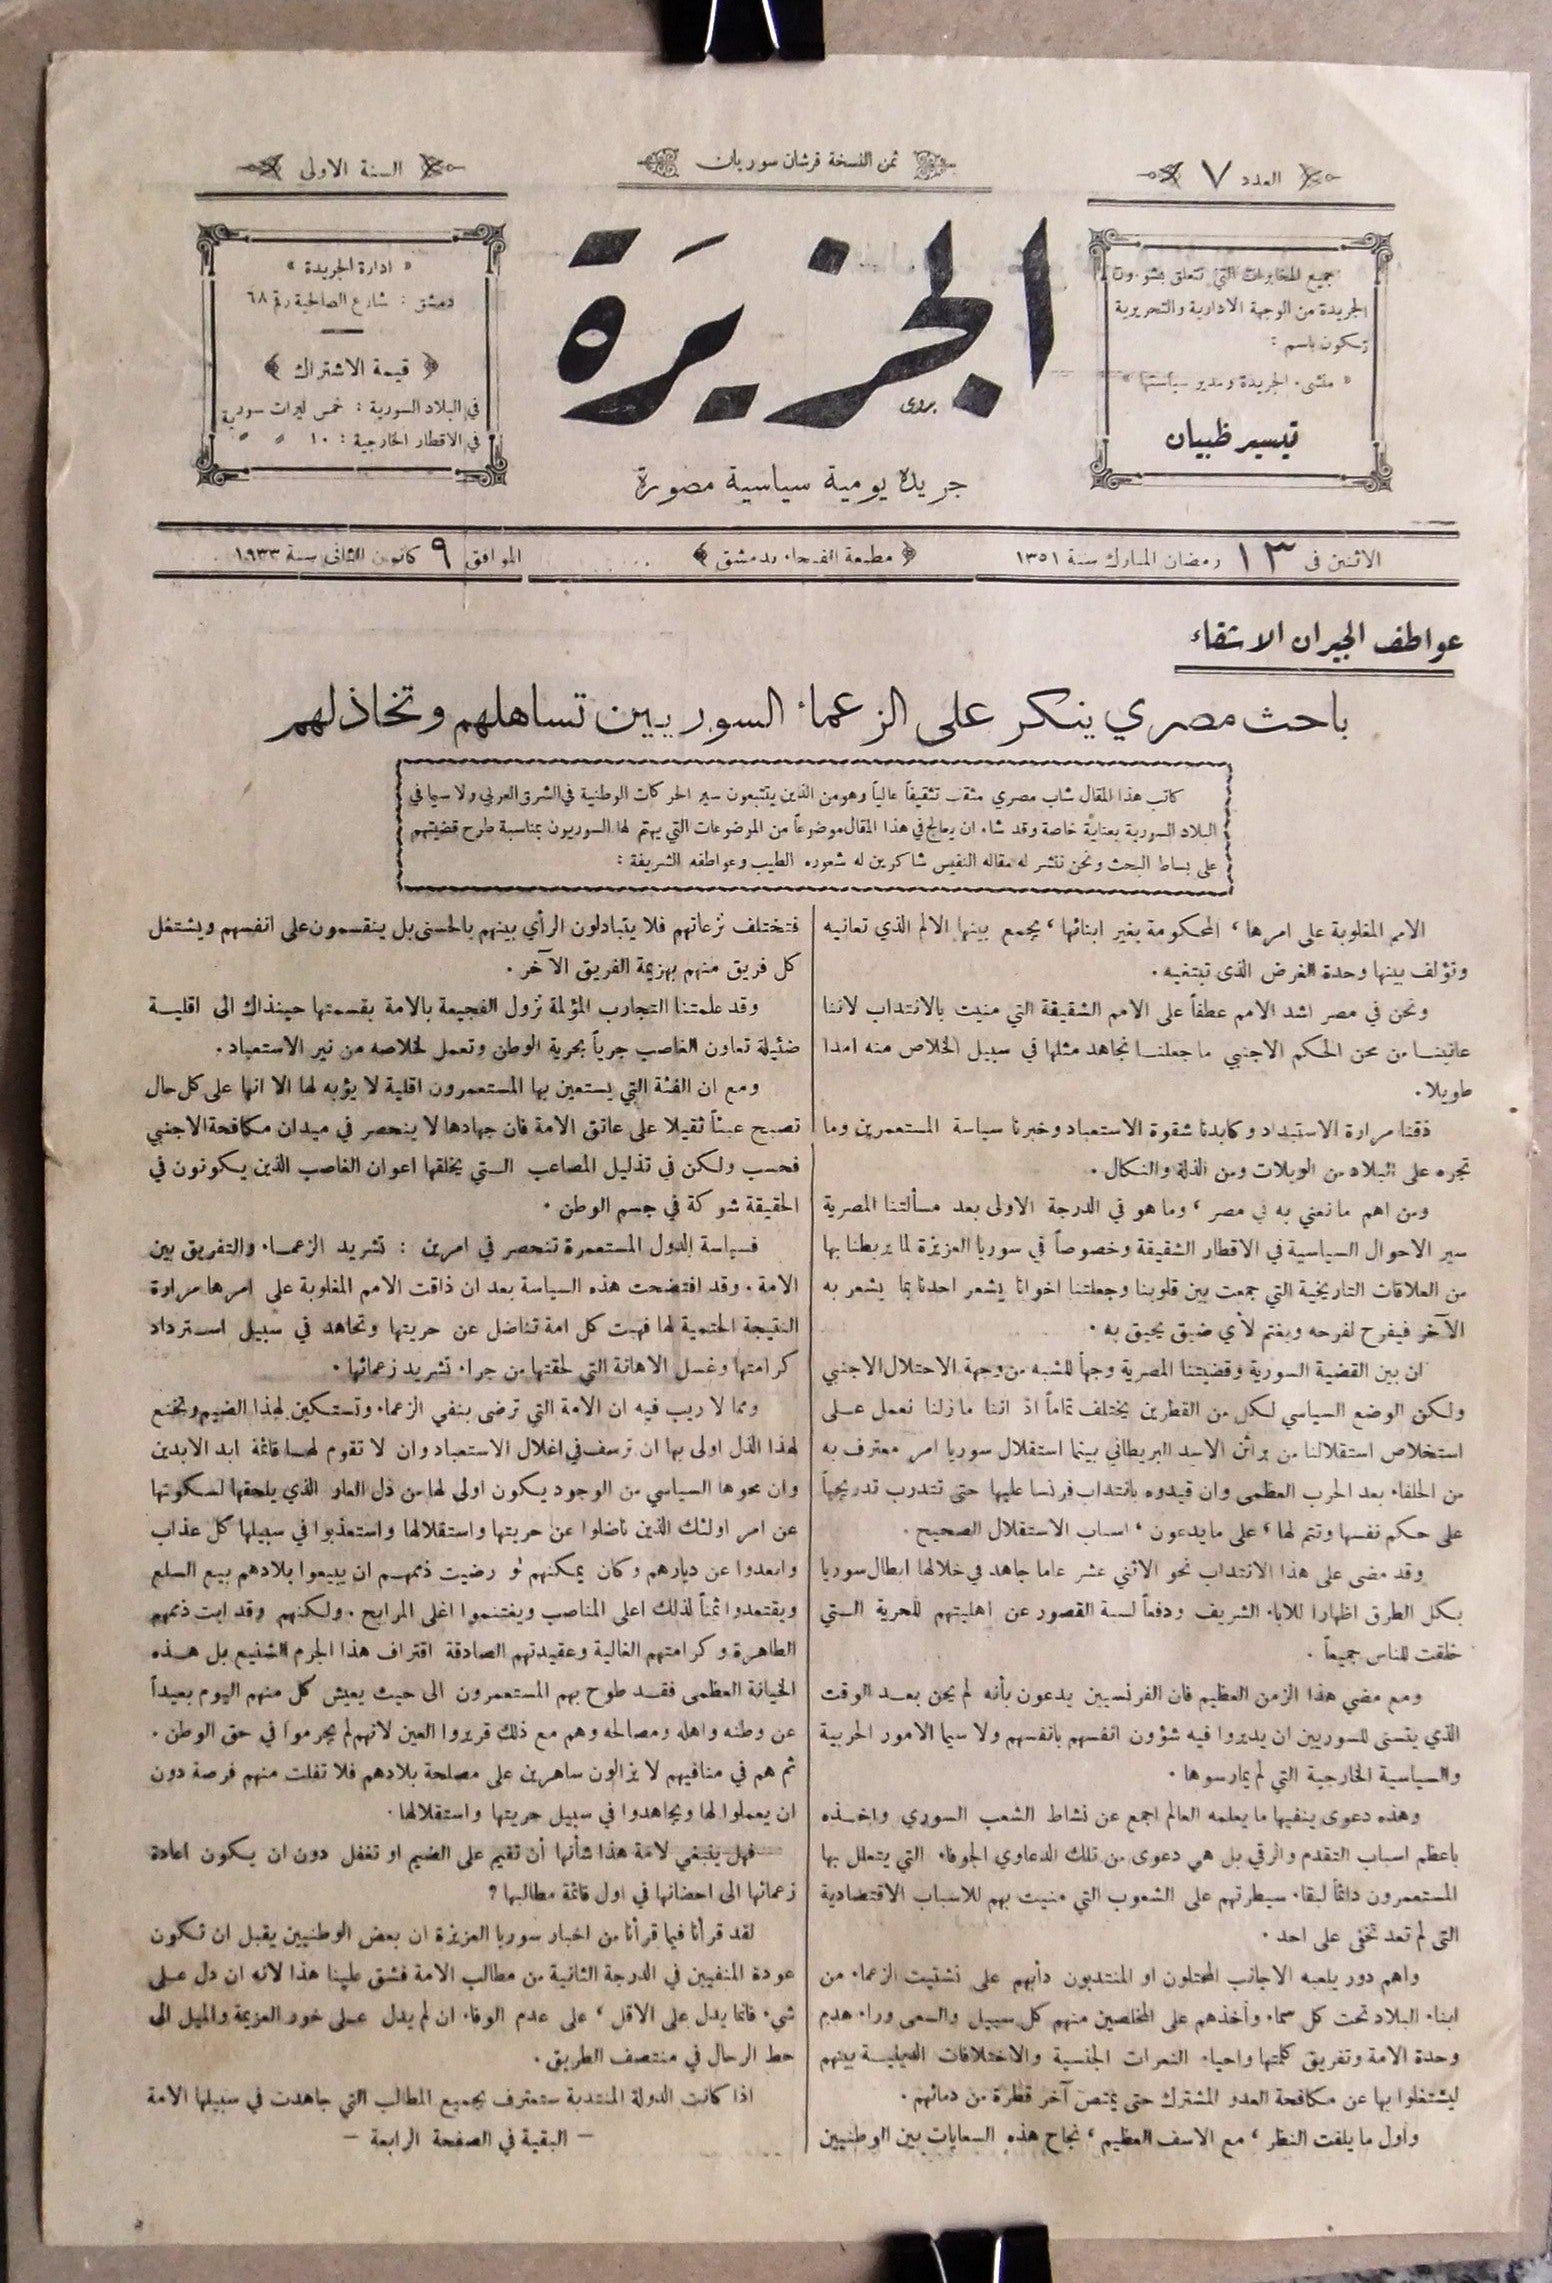 العدد ٧
ثمن النسخة قرشان سوريان
السنة الاولى
جميع المخابرات التي تتعلق بشؤون
الجريدة من الوجهة الادارية والتحريرية
تكون باسم :
« منشىء الجريدة ومدير سياستها »
تيسير ظبيان
الجزيرة
بدوى
جريدة يومية سياسية مصورة
« ادارة الجريدة »
دمشق : شارع الصالحية رقم ٦٨
قيمة الاشتراك
في البلاد السورية : خمس ليرات سورية
في الاقطار الخارجية : ١٠ » »
الاثنين في ١٣ رمضان المبارك سنة ١٣٥١
مطبعة الفيحاء بدمشق
الموافق ٩ كانون الثاني سنة ١٩٣٣
عواطف الجيران الاشقاء
باحث مصري ينكر على الزعماء السوريين تساهلهم وتخاذلهم
كاتب هذا المقال شاب مصري مثقف تثقيفاً عالياً وهو من الذين يتتبعون سير الحركات الوطنية في الشرق العربي ولا سيما في
البلاد السورية بعناية خاصة وقد شاء ان يعالج في هذا المقال موضوعاً من الموضوعات التي يهتم لها السوريون بمناسبة طرح قضيتهم
على بساط البحث ونحن ننشر له مقاله النفيس شاكرين له شعوره الطيب وعواطفه الشريفة :
الامم المغلوبة على امرها ، المحكومة بغير ابنائها ، يجمع بينها الالم الذي تعانيه
وتؤلف بينها وحدة الغرض الذى تبتغيه .
ونحن في مصر اشد الامم عطفاً على الامم الشقيقة التي منيت بالانتداب لاننا
عانينا من محن الحكم الاجنبي ما جعلنا نجاهد مثلها في سبيل الخلاص منه امدا
طويلا .
ذقنا مرارة الاستبداد وكابدنا شقوة الاستعباد وخبرنا سياسة المستعمرين وما
تجره على البلاد من الويلات ومن الذلة والنكال .
ومن اهم ما نعني به في مصر ، وما هو في الدرجة الاولى بعد مسألتنا المصرية
سير الاحوال السياسية في الاقطار الشقيقة وخصوصاً في سوريا العزيزة لما يربطنا بها
من العلاقات التاريخية التي جمعت بين قلوبنا وجعلتنا اخوانا يشعر احدنا بما يشعر به
الآخر فيفرح لفرحه ويغتم لأي ضيق يحيق به .
ان بين القضية السورية وقضيتنا المصرية وجهاً للشبه من وجهة الاحتلال الاجنبي
ولكن الوضع السياسي لكل من القطرين يختلف تماماً اذ اننا ما زلنا نعمل على
استخلاص استقلالنا من براثن الاسد البريطاني بينما استقلال سوريا امر معترف به
من الحلفاء بعد الحرب العظمى وان قيدوه بانتداب فرنسا عليها حتى تتدرب تدريجياً
على حكم نفسها وتتم لها ، على ما يدعون ، اسباب الاستقلال الصحيح .
وقد مضى على هذا الانتداب نحو الاثني عشر عاما جاهد في خلالها ابطال سوريا
بكل الطرق اظهارا للاباء الشريف ودفعاً لسبة القصور عن اهليتهم للحرية التي
خلقت للناس جميعاً .
ومع مضي هذا الزمن العظيم فان الفرنسيين يدعون بأنه لم يحن بعد الوقت
الذي يتسنى للسوريين ان يديروا فيه شؤون انفسهم بانفسهم ولا سيما الامور الحربية
والسياسية الخارجية التي لم يمارسوها .
وهذه دعوى ينفيها ما يعلمه العالم اجمع عن نشاط الشعب السوري واخذه
باعظم اسباب التقدم والرقي بل هي دعوى من تلك الدعاوي الجوفاء التي يتعلل بها
المستعمرون دائماً لبقاء سيطرتهم على الشعوب التي منيت بهم للاسباب الاقتصادية
التى لم تعد تخفى على احد .
واهم دور يلعبه الاجانب المحتلون او المنتدبون دأبهم على تشتيت الزعماء من
ابناء البلاد تحت كل سماء وأخذهم على المخلصين منهم كل سبيل والسعى وراء هدم
وحدة الامة وتفريق كلمتها واحياء النعرات الجنسية والاختلافات القبلية بينهم
ليشتغلوا بها عن مكافحة العدو المشترك حتى يمتص آخر قطرة من دمائهم .
واول ما يلفت النظر ، مع الاسف العظيم ، نجاح هذه السعايات بين الوطنيين
فتختلف نزعاتهم فلا يتبادلون الرأي بينهم بالحسنى بل ينقسمون على انفسهم ويشتغل
كل فريق منهم بهزيمة الفريق الآخر .
وقد علمتنا التجارب المؤلمة نزول الفجيعة بالامة بقسمتها حينذاك الى اقلية
ضئيلة تعاون الغاصب جرياً بحرية الوطن وتعمل لخلاصه من نير الاستعباد .
ومع ان الفئة التي يستعين بها المستعمرون اقلية لا يؤبه لها الا انها على كل حال
تصبح عبئاً ثقيلا على عاتق الامة فان جهادها لا ينحصر في ميدان مكافحة الاجنبي
فحسب ولكن في تذليل المصاعب التي يخلقها اعوان الغاصب الذين يكونون في
الحقيقة شوكة في جسم الوطن .
فسياسة الدول المستعمرة تنحصر في امرين : تشريد الزعماء والتفريق بين
الامة . وقد افتضحت هذه السياسة بعد ان ذاقت الامم المغلوبة على امرها مرارة
النتيجة الحتمية لها فهبت كل امة تناضل عن حريتها وتجاهد في سبيل استرداد
كرامتها وغسل الاهانة التي لحقتها من جراء تشريد زعمائها .
ومما لا ريب فيه ان الامة التي ترضى بنفي الزعماء وتستكين لهذا الضيم وتخنع
لهذا الذل اولى بها ان ترسف في اغلال الاستعباد وان لا تقوم لها قائمة ابد الابدين
وان محوها السياسي من الوجود يكون اولى لها من ذل العار الذي يلحقها لسكوتها
عن امر اولئك الذين ناضلوا عن حريتها واستقلالها واستعذبوا في سبيلها كل عذاب
وابعدوا عن ديارهم وكان يمكنهم لو رضيت ذممهم ان يبيعوا بلادهم بيع السلع
ويقتعدوا ثمناً لذلك اعلى المناصب ويغتنموا اغلى المرابح . ولكنهم وقد ابت ذممهم
الطاهرة وكرامتهم الغالية وعقيدتهم الصادقة اقتراف هذا الجرم الشنيع بل هذه
الخيانة العظمى فقد طوح بهم المستعمرون الى حيث يعيش كل منهم اليوم بعيداً
عن وطنه واهله ومصالحه وهم مع ذلك قريروا العين لانهم لم يجرموا في حق الوطن .
ثم هم في منافيهم لا يزالون ساهرين على مصلحة بلادهم فلا تفلت منهم فرصة دون
ان يعملوا لها ويجاهدوا في سبيل حريتها واستقلالها .
فهل ينبغي لامة هذا شأنها أن تقيم على الضيم او تغفل دون ان يكون اعادة
زعمائها الى احضانها في اول قائمة مطالبها ؟
لقد قرأنا فيما قرأنا من اخبار سوريا العزيزة ان بعض الوطنيين يقبل ان تكون
عودة المنفيين في الدرجة الثانية من مطالب الامة فشق علينا هذا لانه ان دل على
شيء فانما يدل على الاقل ، على عدم الوفاء ان لم يدل على خور العزيمة والميل الى
حط الرحال في منتصف الطريق .
اذا كانت الدولة المنتدبة ستعترف بجميع المطالب التي جاهدت في سبيلها الامة
— البقية في الصفحة الرابعة —